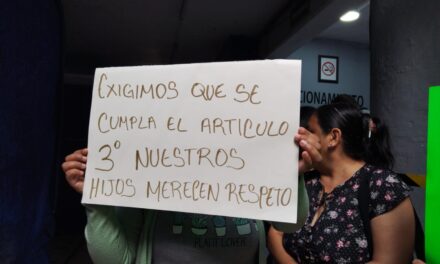 EXIGIMOS QUE SE
CUMPLA EL ARTICULO
3° NUESTROS
HIJOS MERECEN RESPETO
CIONAMIENTO